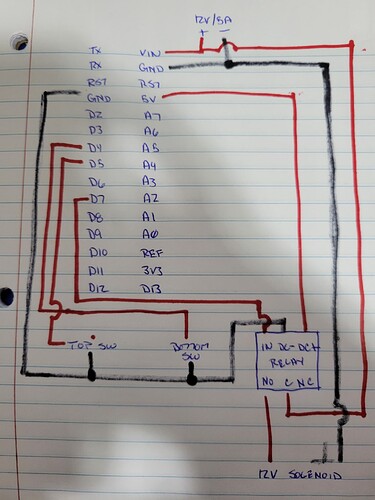 12V/5A
+ -
TX VIN
RX GND
RST RST
GND 5V
D2 A7
D3 A6
D4 A5
D5 A4
D6 A3
D7 A2
D8 A1
D9 A0
D10 REF
D11 3V3
D12 D13
TOP SW
BOTTOM
SW
IN DC- DC+
RELAY
NO C NC
12V SOLENOID